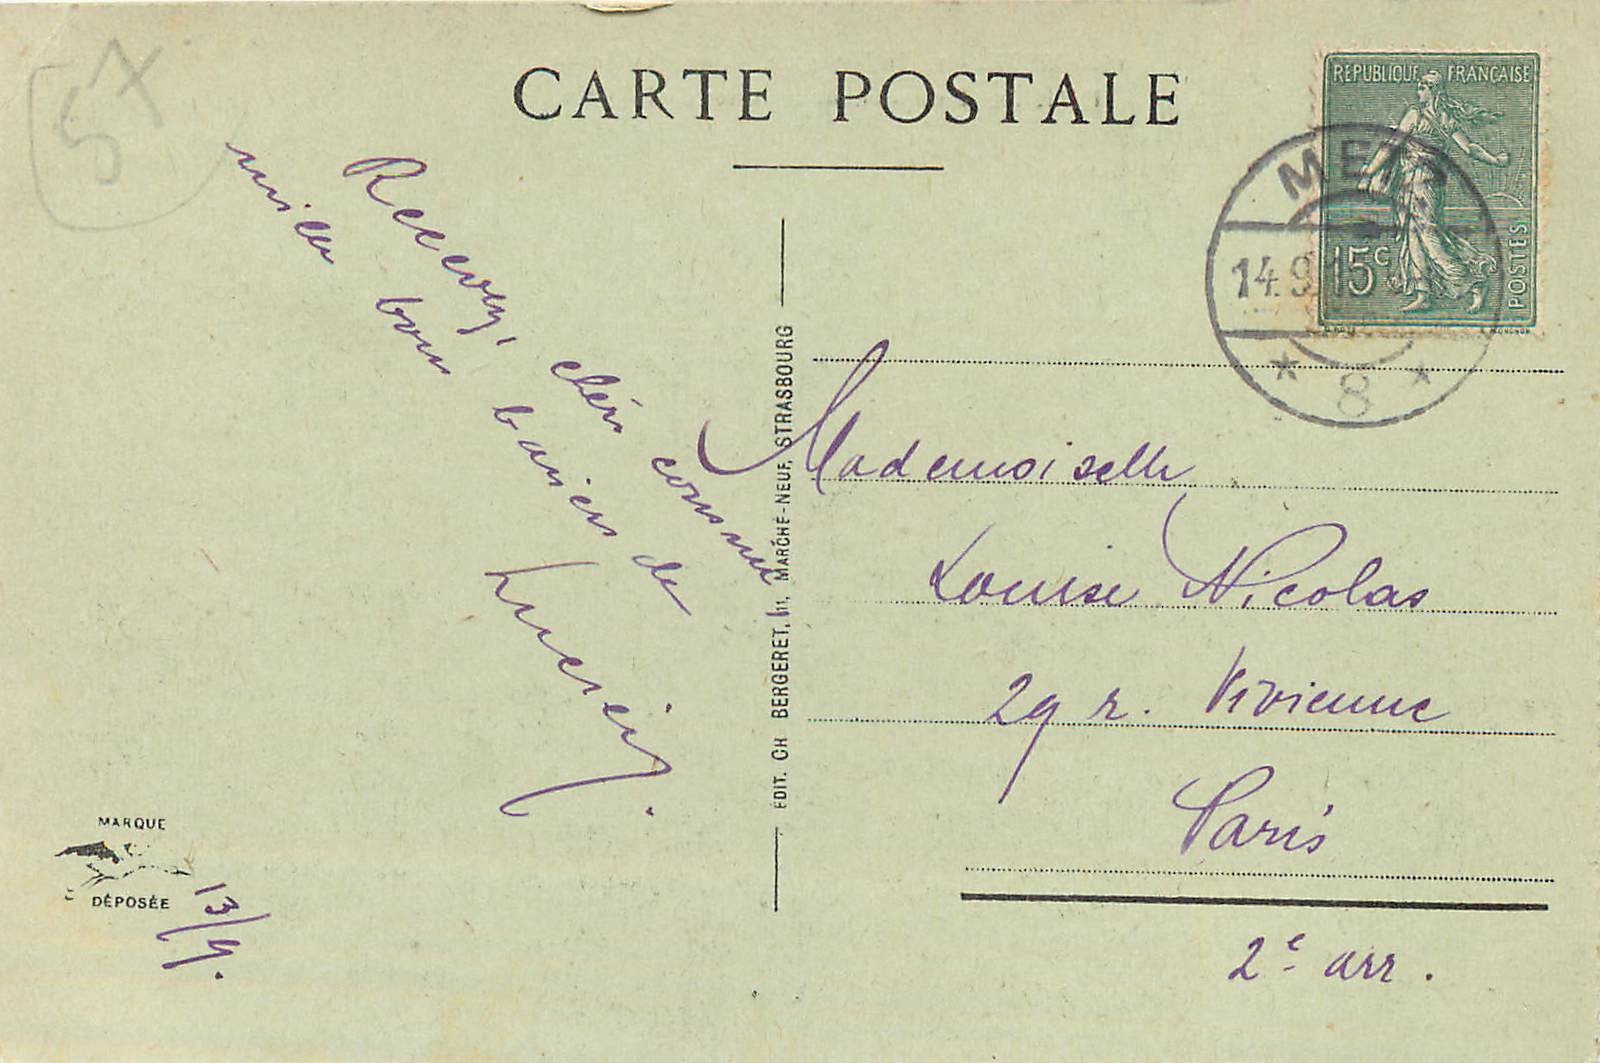 CARTE POSTALE
57
REPUBLIQUE FRANÇAISE
15c
POSTES
METZ
14.9.19
* 8 *
Recevez, chère cousine
mille bons baisers de
Lucien.
13/9.
MARQUE
DÉPOSÉE
EDIT. CH BERGERET, 11, MARCHÉ-NEUF, STRASBOURG
Mademoiselle
Louise Nicolas
29 r. Vivienne
Paris
2e arr.